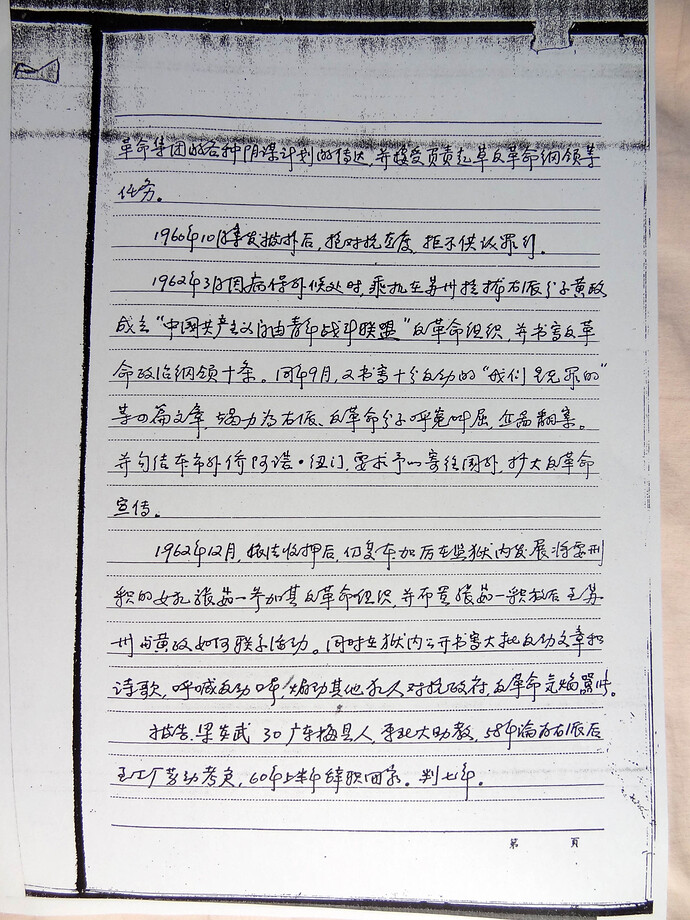 革命集团的各种阴谋计划的传达，并接受负责起草反革命纲领等
任务。
1960年10月事发被捕后，抱对抗态度，拒不供认罪行。
1962年3月因病保外候处时，乘机在苏州拉拢右派分子黄政
成立“中国共产主义自由青年战斗联盟”反革命组织，并书写反革
命政治纲领十条。同年9月，又书写十分反动的“我们是无罪的”
等四篇文章，竭力为右派、反革命分子呼冤叫屈，企图翻案。
并勾结本市外侨阿诺·纽门，要求予以寄往国外，扩大反革命
宣传。
1962年12月，依法收押后，仍变本加厉在监狱内发展将要刑
释的女犯张茹一参加其反革命组织，并布置张茹一释放后至苏
州与黄政如何联系活动。同时在狱内公开书写大批反动文章和
诗歌，呼喊反动口号，煽动其他犯人对抗政府，反革命气焰嚣张。
被告：梁 武 30 广东梅县人，系北大助教，58年 右派后
至工厂劳动考查，60年上半年 职回家。判七年。
第 页